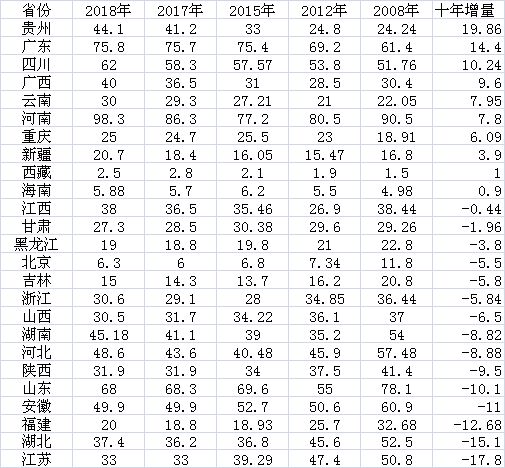 省份 2018年 2017年 2015年 2012年 2008年 十年增量
贵州 44.1 41.2 33 24.8 24.24 19.86
广东 75.8 75.7 75.4 69.2 61.4 14.4
四川 62 58.3 57.57 53.8 51.76 10.24
广西 40 36.5 31 28.5 30.4 9.6
云南 30 29.3 27.21 21 22.05 7.95
河南 98.3 86.3 77.2 80.5 90.5 7.8
重庆 25 24.7 25.5 23 18.91 6.09
新疆 20.7 18.4 16.05 15.47 16.8 3.9
西藏 2.5 2.8 2.1 1.9 1.5 1
海南 5.88 5.7 6.2 5.5 4.98 0.9
江西 38 36.5 35.46 26.9 38.44 -0.44
甘肃 27.3 28.5 30.38 29.6 29.26 -1.96
黑龙江 19 18.8 19.8 21 22.8 -3.8
北京 6.3 6 6.8 7.34 11.8 -5.5
吉林 15 14.3 13.7 16.2 20.8 -5.8
浙江 30.6 29.1 28 34.85 36.44 -5.84
山西 30.5 31.7 34.22 36.1 37 -6.5
湖南 45.18 41.1 39 35.2 54 -8.82
河北 48.6 43.6 40.48 45.9 57.48 -8.88
陕西 31.9 31.9 34 37.5 41.4 -9.5
山东 68 68.3 69.6 55 78.1 -10.1
安徽 49.9 49.9 52.7 50.6 60.9 -11
福建 20 18.8 18.93 25.7 32.68 -12.68
湖北 37.4 36.2 36.8 45.6 52.5 -15.1
江苏 33 33 39.29 47.4 50.8 -17.8